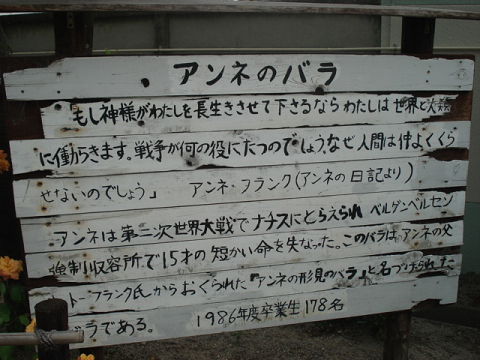 、アンネのバラ
「もし神様がわたしを長生きさせて下さるならわたしは世界と人類
に働らきます。戦争が何の役にたつのでしょうなぜ人間は仲よくくら
せないのでしょう」 アンネ・フランク(アンネの日記より)
アンネは第二次世界大戦でナチスにとらえられ ベルゲンベルセン
強制収容所で15才の短かい命を失なった。このバラはアンネの父
トーフランク氏からおくられた『アンネの形見のバラ』と名づけられた
バラである。 1986年度卒業生178名